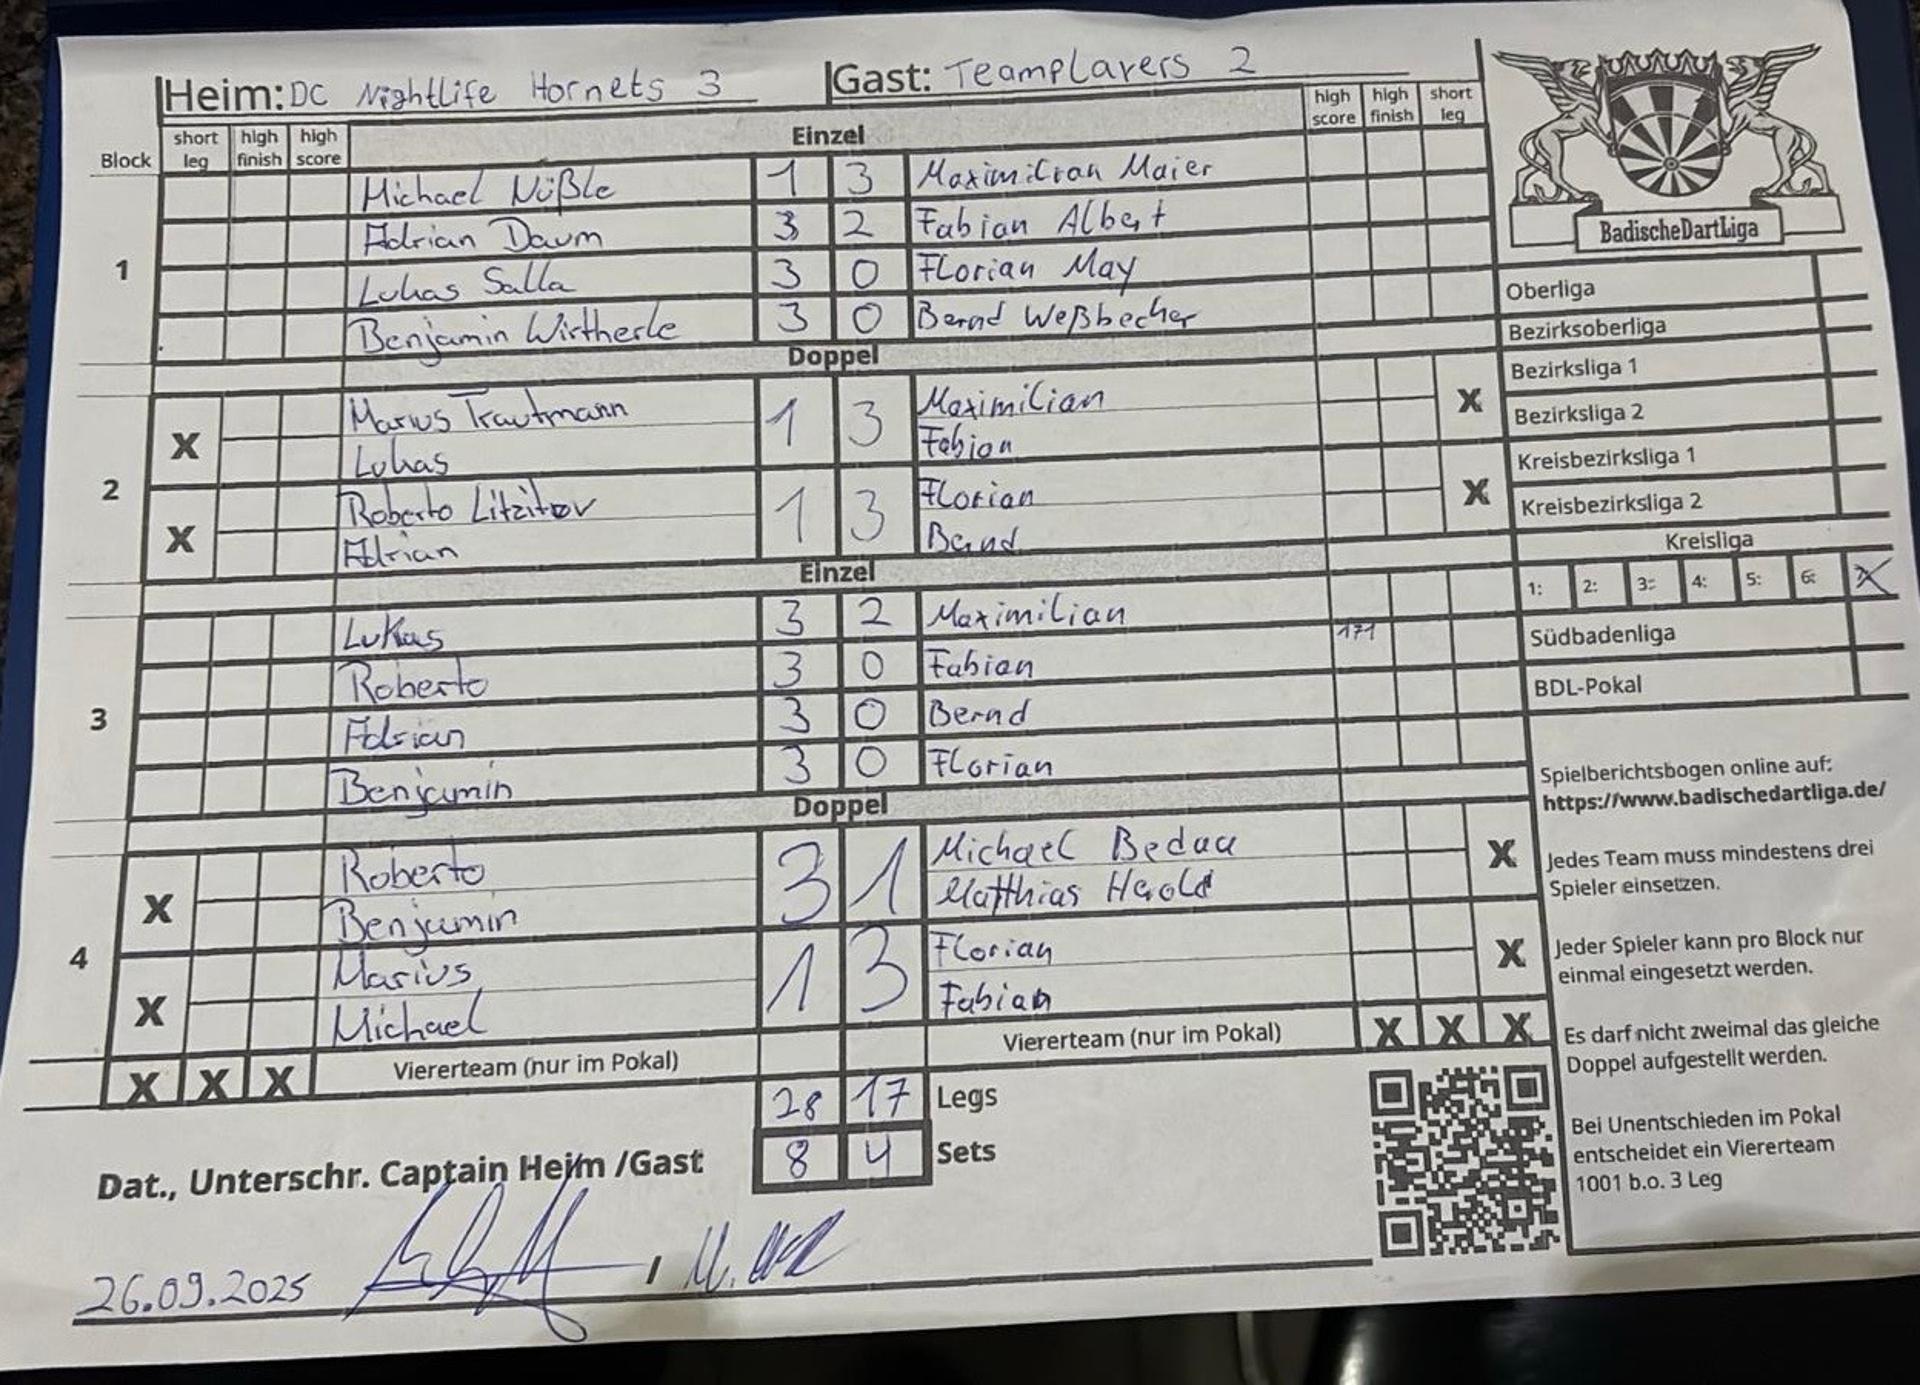 Heim: DC Nightlife Hornets 3 Gast: Teamplayers 2
Block short leg high finish high score Einzel high score high finish short leg
1
Michael Nüßle 1 3 Maximilian Maier
Adrian Daum 3 2 Fabian Albert
Lukas Salla 3 0 Florian May
Benjamin Wirtherle 3 0 Bernd Weßbecher
Doppel
2
X Marius Trautmann 1 3 Maximilian X
Lukas Fabian
X Roberto 1 3 Florian X
Adrian Bernd
Einzel
3
Lukas 3 2 Maximilian
Roberto 3 0 Fabian 171
Adrian 3 0 Bernd
Benjamin 3 0 Florian
Doppel
4
X Roberto 3 1 Michael X
Benjamin Matthias
X Marius 1 3 Florian X
Michael Fabian
X X X Viererteam (nur im Pokal) Viererteam (nur im Pokal) X X X
28 17 Legs
8 4 Sets
Dat., Unterschr. Captain Heim /Gast
26.09.2025 /
BadischeDartLiga
Oberliga
Bezirksoberliga
Bezirksliga 1
Bezirksliga 2
Kreisbezirksliga 1
Kreisbezirksliga 2
Kreisliga
1: 2: 3: 4: 5: 6: X
Südbadenliga
BDL-Pokal
Spielberichtsbogen online auf:
https://www.badischedartliga.de/
Jedes Team muss mindestens drei
Spieler einsetzen.
Jeder Spieler kann pro Block nur
einmal eingesetzt werden.
Es darf nicht zweimal das gleiche
Doppel aufgestellt werden.
Bei Unentschieden im Pokal
entscheidet ein Viererteam
1001 b.o. 3 Leg